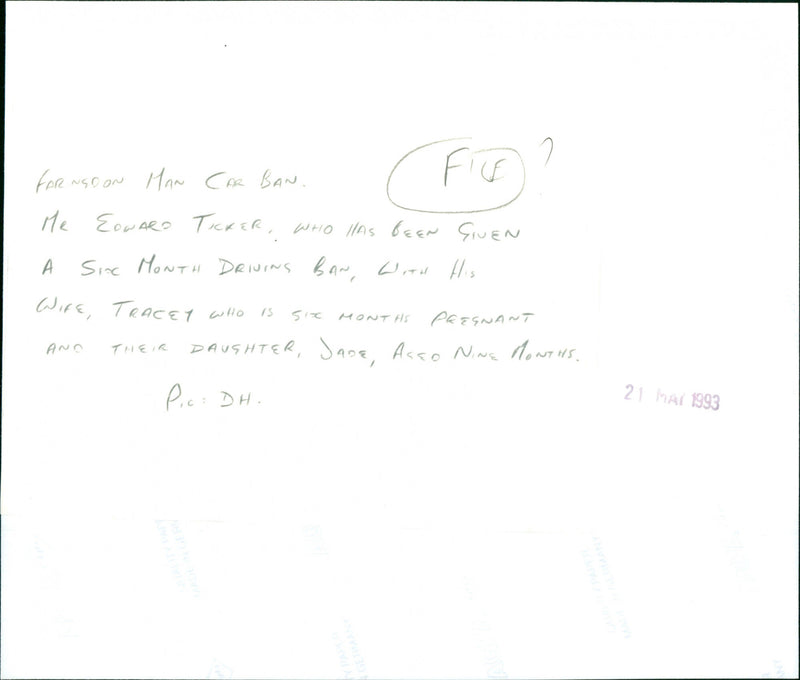 FILE ?
FARNGDON MAN CAR BAN.
MR EDWARD TICKER, WHO HAS BEEN GIVEN
A SIX MONTH DRIVING BAN, WITH HIS
WIFE, TRACEY WHO IS SIX MONTHS PREGNANT
AND THEIR DAUGHTER, JADE, AGED NINE MONTHS.
PIC: DH.
21 MAY 1993